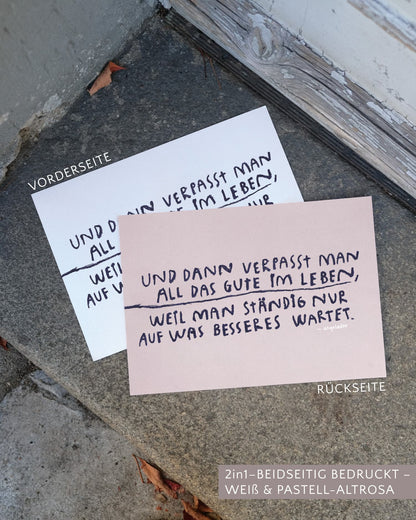 VORDERSEITE
UND DANN VERPASST MAN
ALL
GUTE IM LEBEN,
NUR
AUF
UND DANN VERPASST MAN
ALL DAS GUTE IM LEBEN,
WEIL MAN STÄNDIG NUR
AUF WAS BESSERES WARTET.
RÜCKSEITE
2in1–BEIDSEITIG BEDRUCKT –
WEIß & PASTELL-ALTROSA